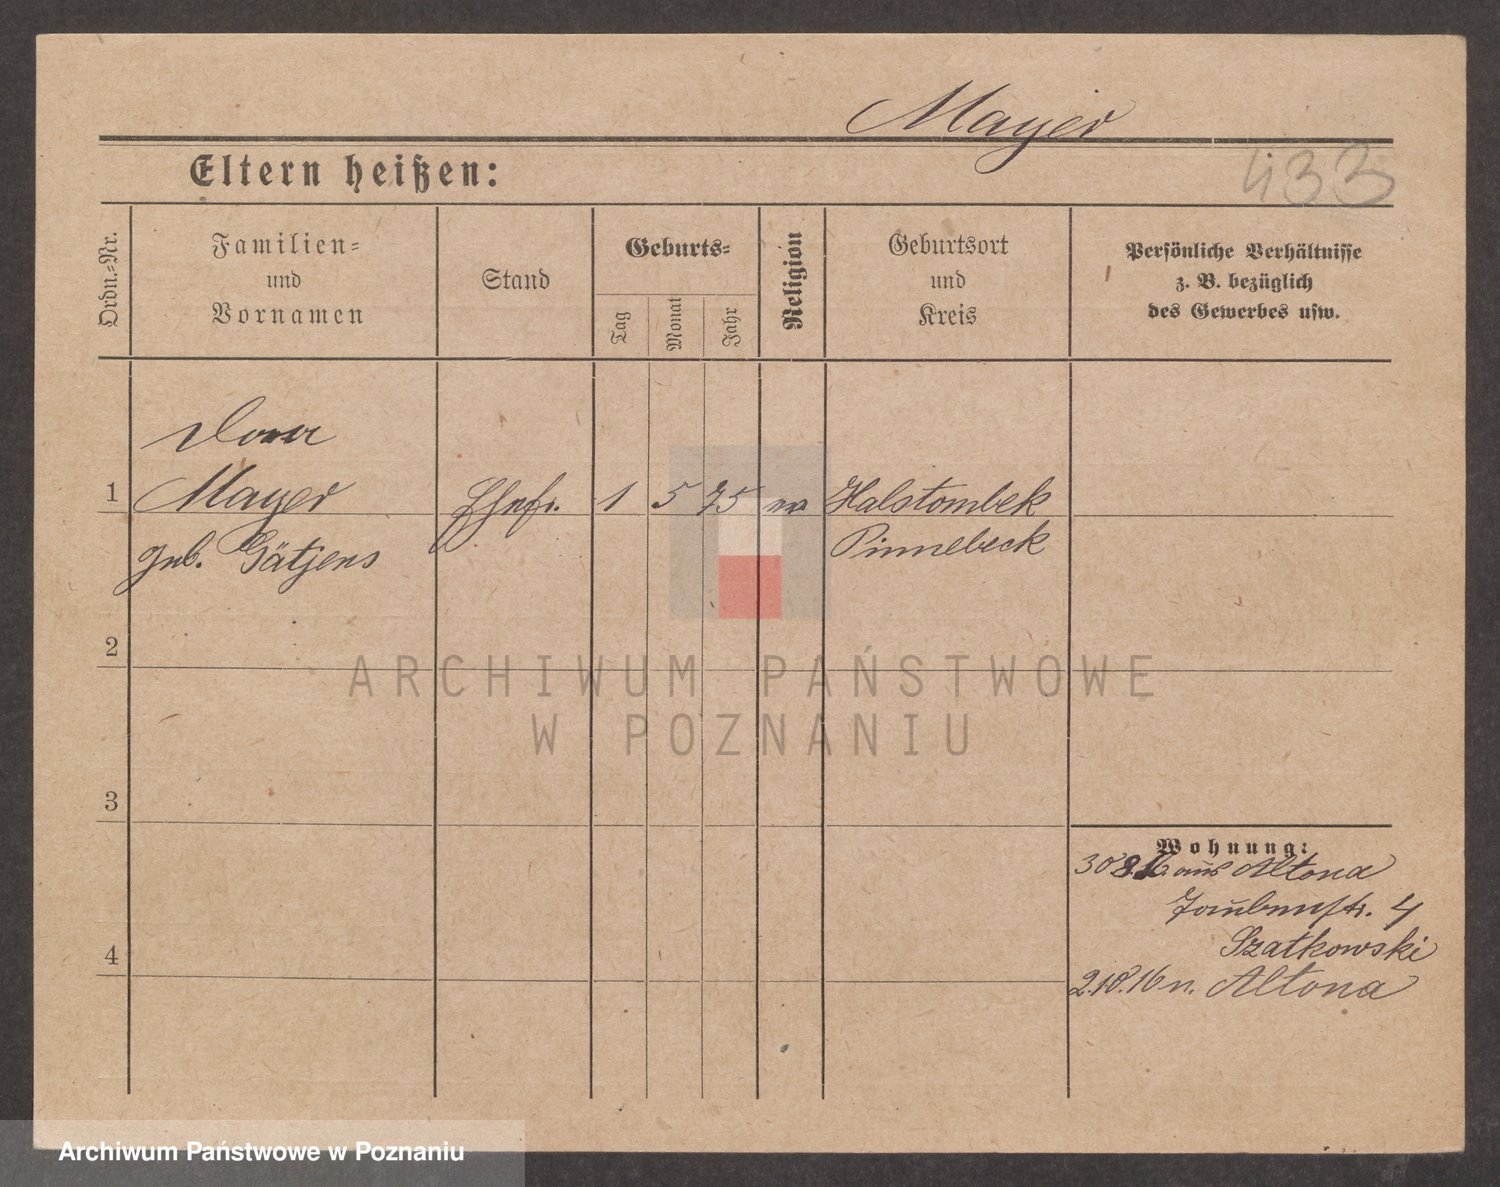 Mayer
433
Eltern heißen:
Ordn.-Nr.
Familien-
und
Vornamen
Stand
Geburts-
Tag
Monat
Jahr
Religion
Geburtsort
und
Kreis
Persönliche Verhältnisse
z. B. bezüglich
des Gewerbes usw.
Dora
1 Mayer Ehefr. 1 5 75 ev Halstombek
geb. Gätjens Pinnebeck
2
3
4
Wohnung:
30.8.16. aus Altona
Taubenstr. 4
Szatkowski
2.10.16 n. Altona
ARCHIWUM PAŃSTWOWE
W POZNANIU
Archiwum Państwowe w Poznaniu